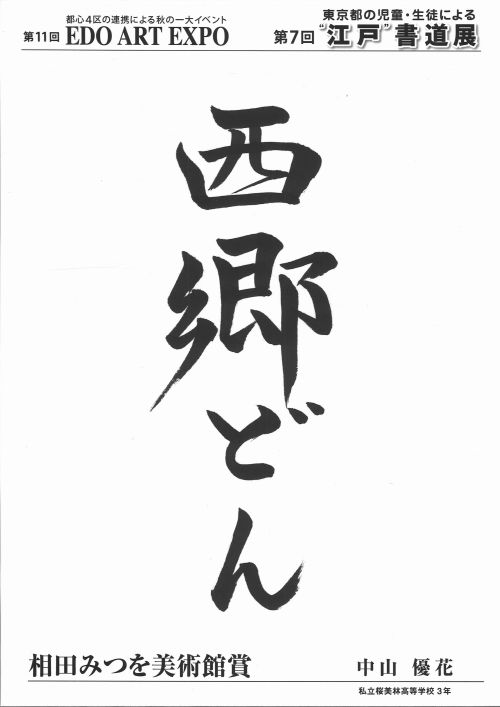 都心4区の連携による秋の一大イベント
第11回 EDO ART EXPO
東京都の児童・生徒による
第7回 “江戸”書道展
西郷どん
相田みつを美術館賞
中山 優花
私立桜美林高等学校 3年